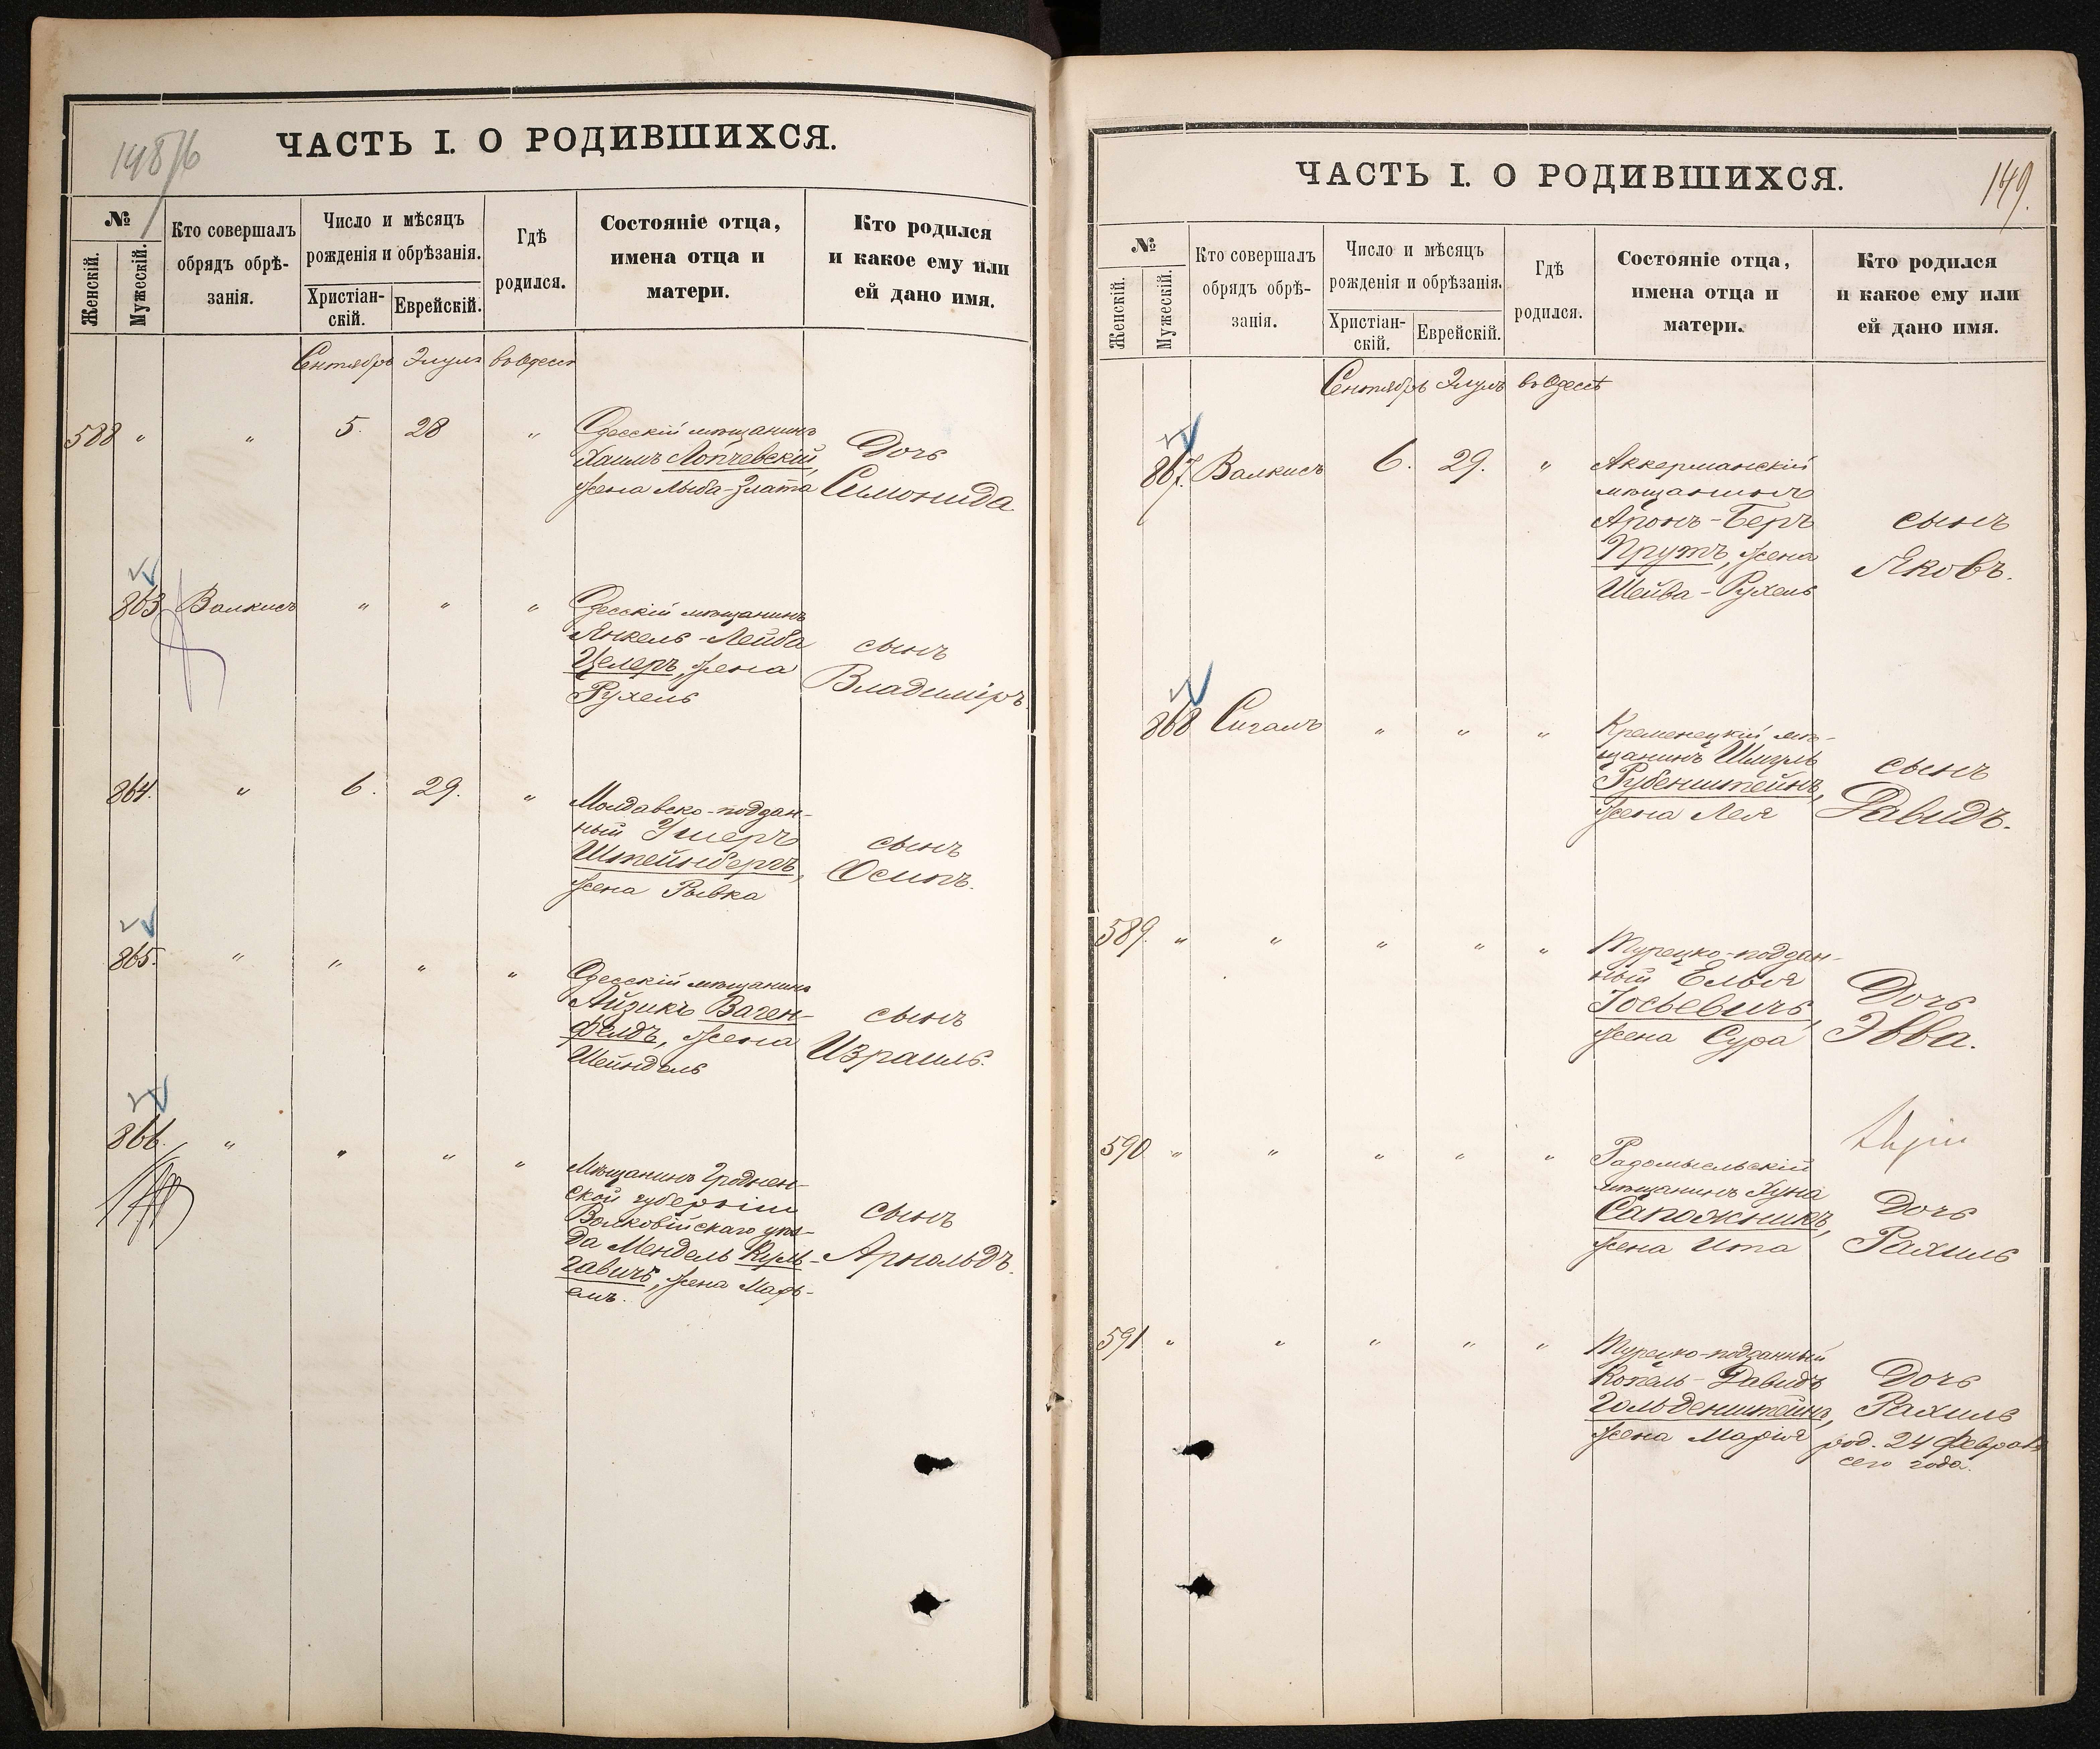 148/б
ЧАСТЬ I. О РОДИВШИХСЯ.
№
Женскій.
Мужескій.
Кто совершалъ
обрядъ обрѣ-
занія.
Число и мѣсяцъ
рожденія и обрѣзанія.
Христіан-
скій.
Еврейскій.
Гдѣ
родился.
Состояніе отца,
имена отца и
матери.
Кто родился
и какое ему или
ей дано имя.
Сентябрь Элулъ въ Одессѣ
588 " " 5. 28 " Одесскій мѣщанинъ
Хаимъ Лопчевскій,
жена Лыба-Злата
Дочь
Симонида
863 Валкисъ " " " Одесскій мѣщанинъ
Янкель-Лейба
Целеръ, жена
Рухель
сынъ
Владиміръ.
864. " 6. 29. " Молдавско-поддан-
ный Ушеръ
Штейнбергъ,
жена Рывка
сынъ
Осипъ.
865. " " " " Одесскій мѣщанинъ
Айзикъ Ваген-
фелдъ, жена
Шейндель
сынъ
Израиль.
866. " " " " Мѣщанинъ Гроднен-
ской губерніи
Волковійскаго уѣз-
да Мендель Куль-
гавичъ, жена Марь-
емъ.
сынъ
Арнольдъ.
149.
ЧАСТЬ I. О РОДИВШИХСЯ.
№
Женскій.
Мужескій.
Кто совершалъ
обрядъ обрѣ-
занія.
Число и мѣсяцъ
рожденія и обрѣзанія.
Христіан-
скій.
Еврейскій.
Гдѣ
родился.
Состояніе отца,
имена отца и
матери.
Кто родился
и какое ему или
ей дано имя.
Сентябрь Элулъ въ Одессѣ
867. Валкисъ 6. 29. " Аккерманскій
мѣщанинъ
Аронъ-Беръ
Прутъ, жена
Шейва-Рухель
сынъ
Яковъ.
868 Сигалъ " " " Кременецкій мѣ-
щанинъ Шмуль
Рубенштейнъ,
жена Лея
сынъ
Давидъ.
589. " " " " " Турецко-поддан-
ный Елья
Іосьевичъ,
жена Сура
Дочь
Эвва.
590 " " " " " Радомысльскій
мѣщанинъ Хуна
Сапожникъ,
жена Ита
Дочь
Рахиль
591 " " " " " Турецко-подданный
Копель-Давидъ
Гольденштейнъ,
жена Марія
Дочь
Рахиль
род. 24 Февраля
сего года.